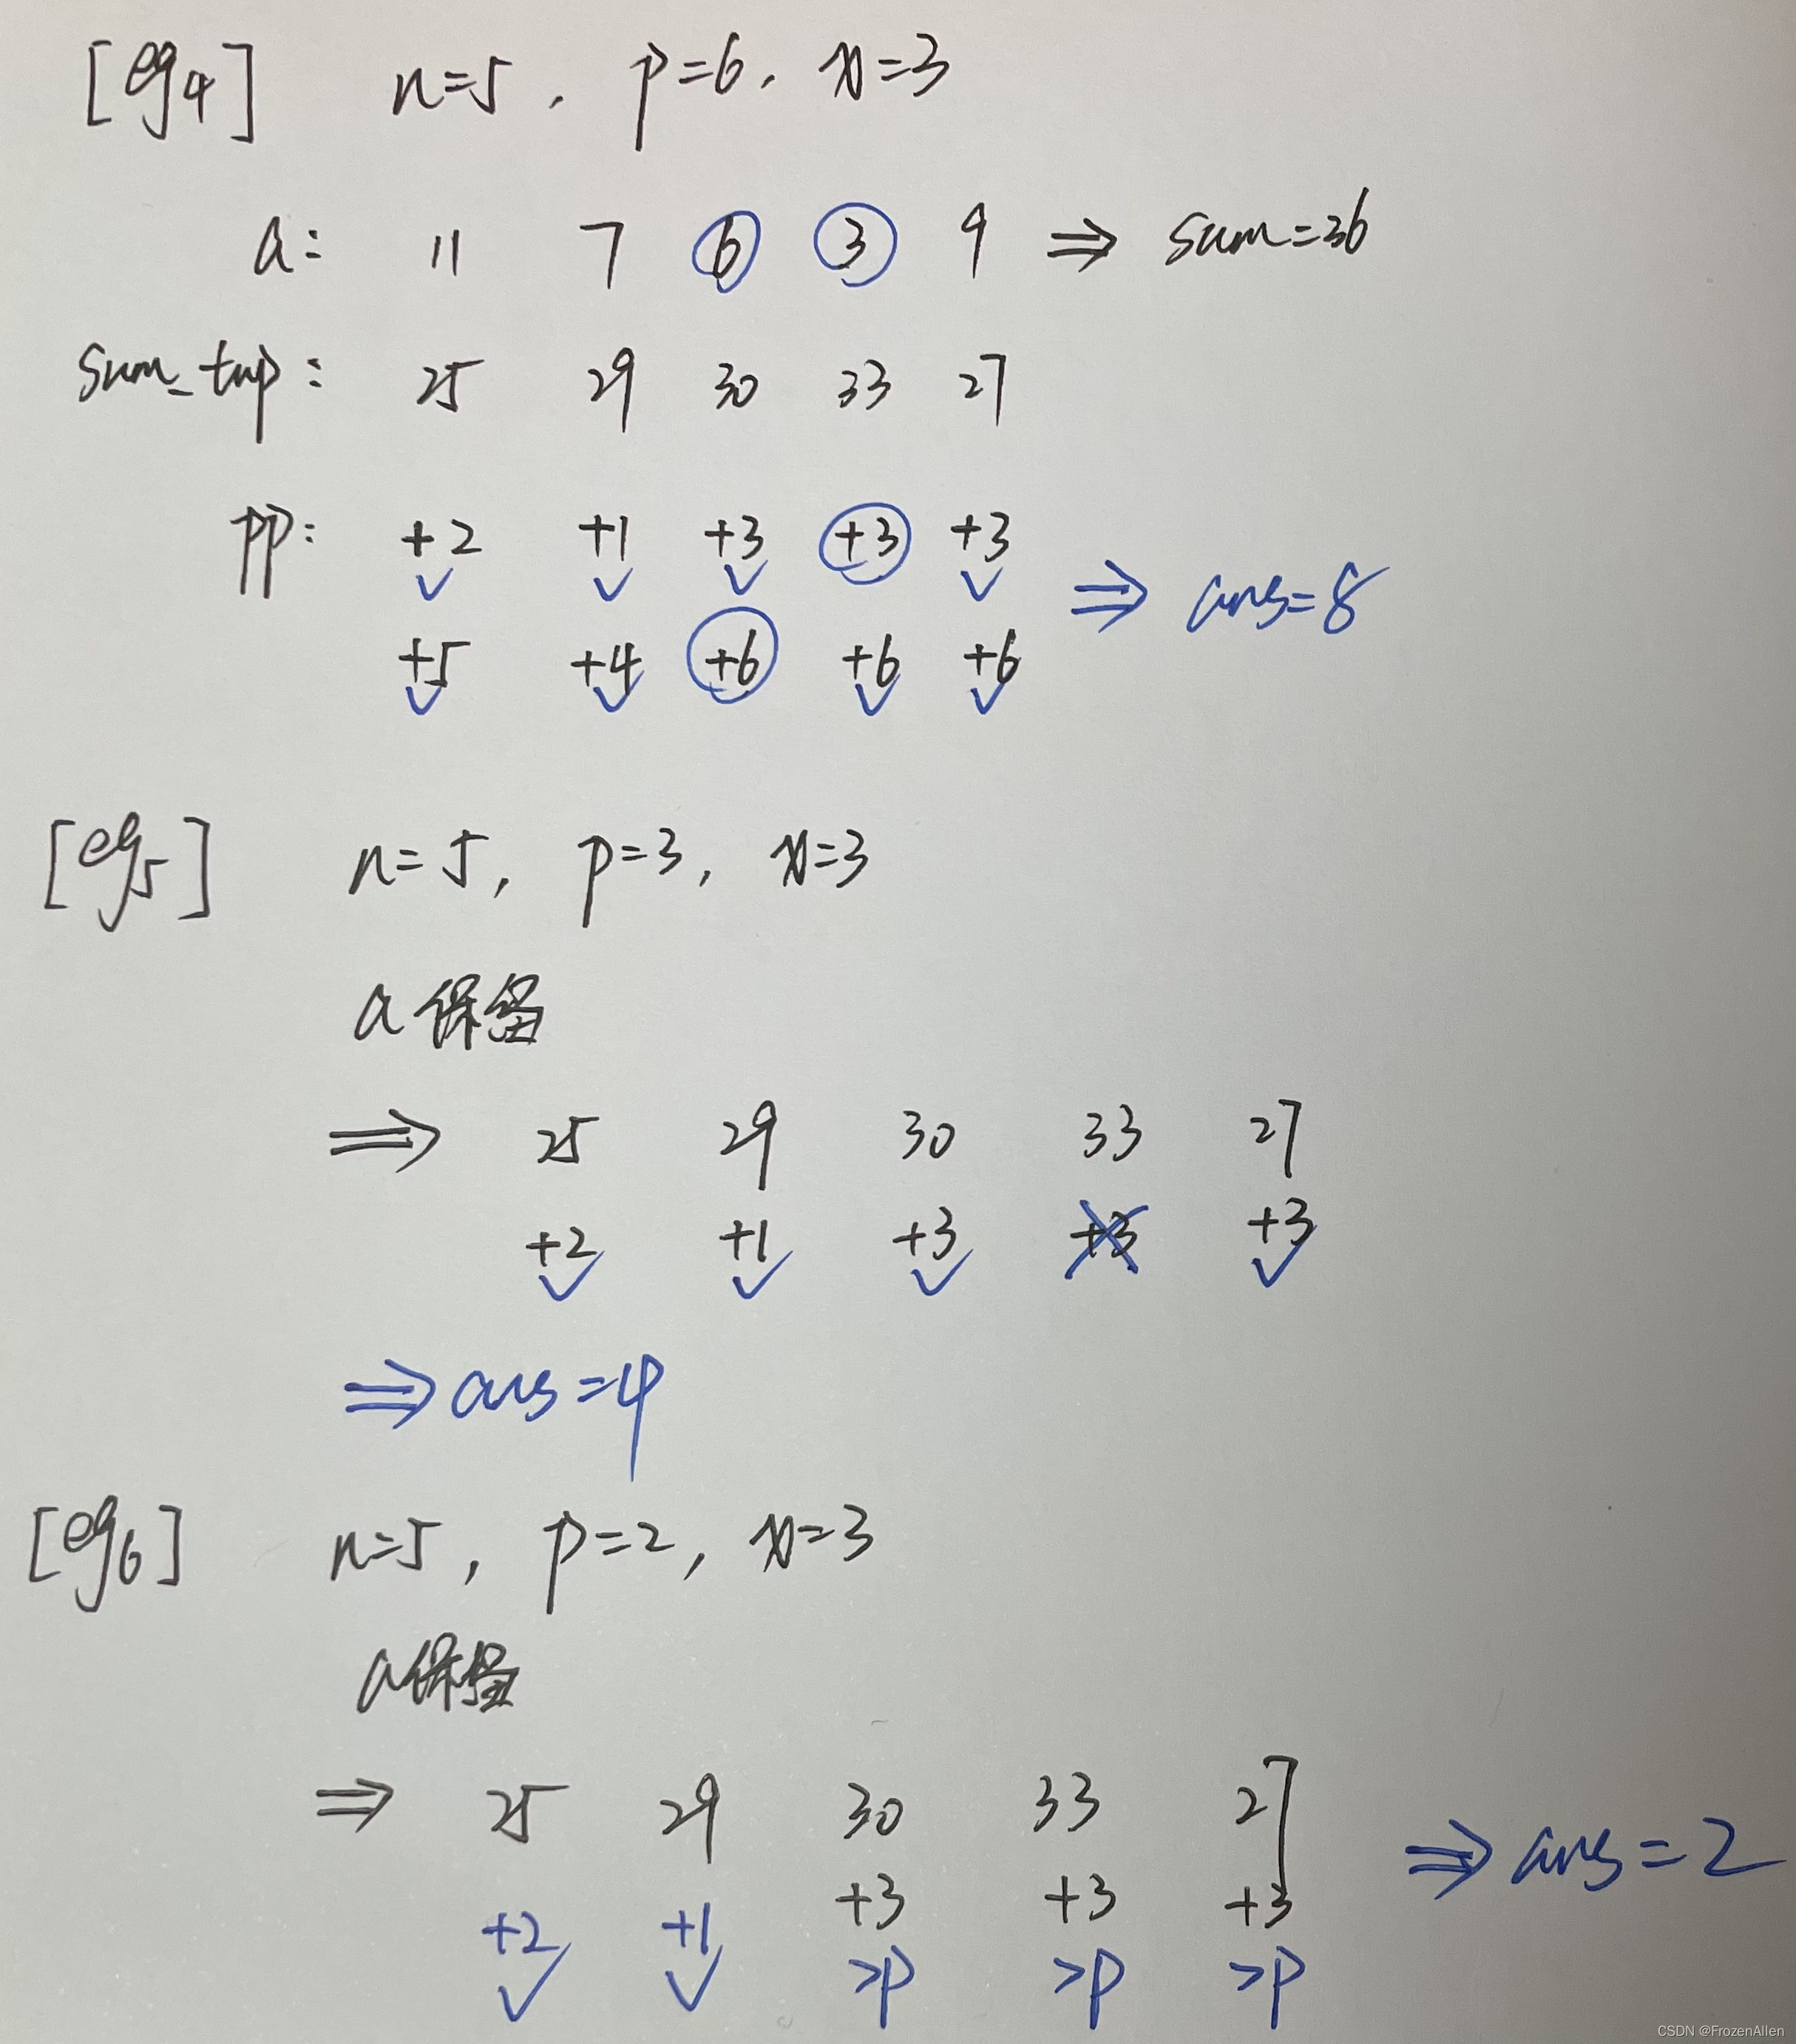 [eg4] n=5, p=6, x=3
a: 11 7 6 3 9 ⇒ sum=36
sum_tmp: 25 29 30 33 27
pp: +2 +1 +3 +3 +3
⇒ ans=8
+5 +4 +6 +6 +6
[eg5] n=5, p=3, x=3
a保留
⇒ 25 29 30 33 27
+2 +1 +3 +3 +3
⇒ ans=4
[eg6] n=5, p=2, x=3
a保留
⇒ 25 29 30 33 27
⇒ ans=2
+2 +1 +3 +3 +3
>p >p >p
CSDN @FrozenAllen